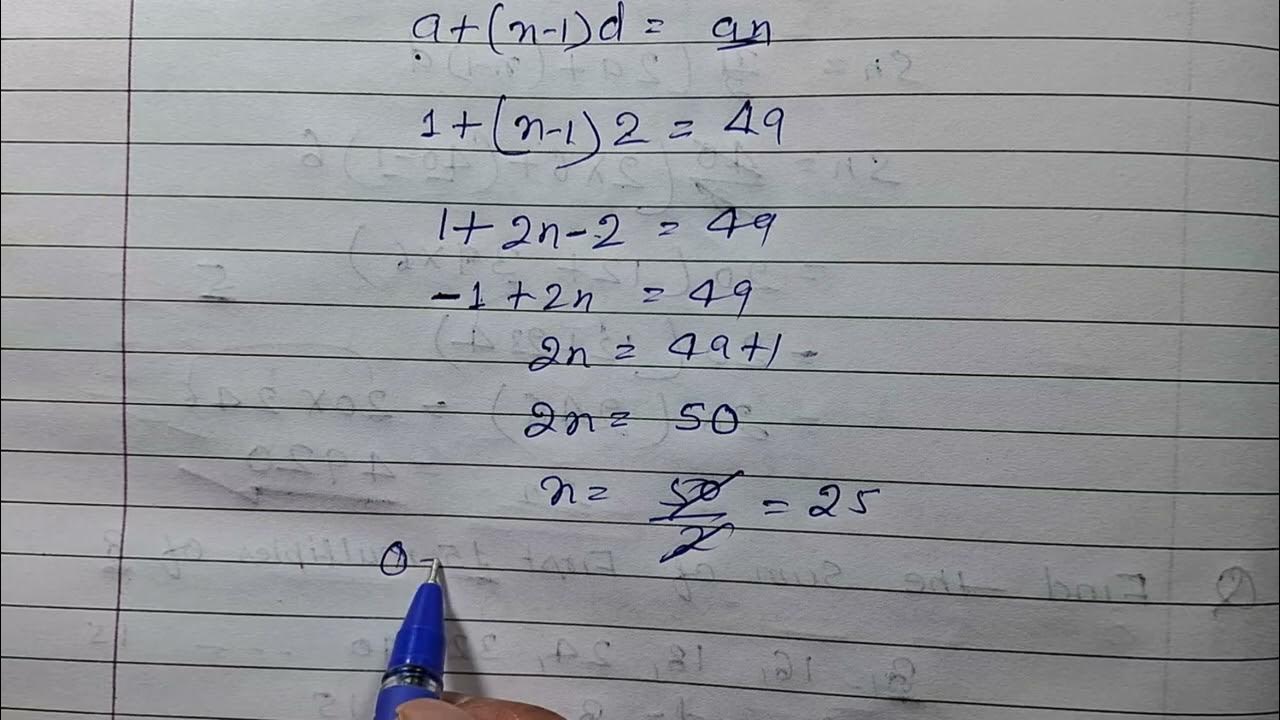 a+(n-1)d = an
1+(n-1)2 = 49
1+2n-2 = 49
-1+2n = 49
2n = 49+1
2n = 50
n = 50/2 = 25